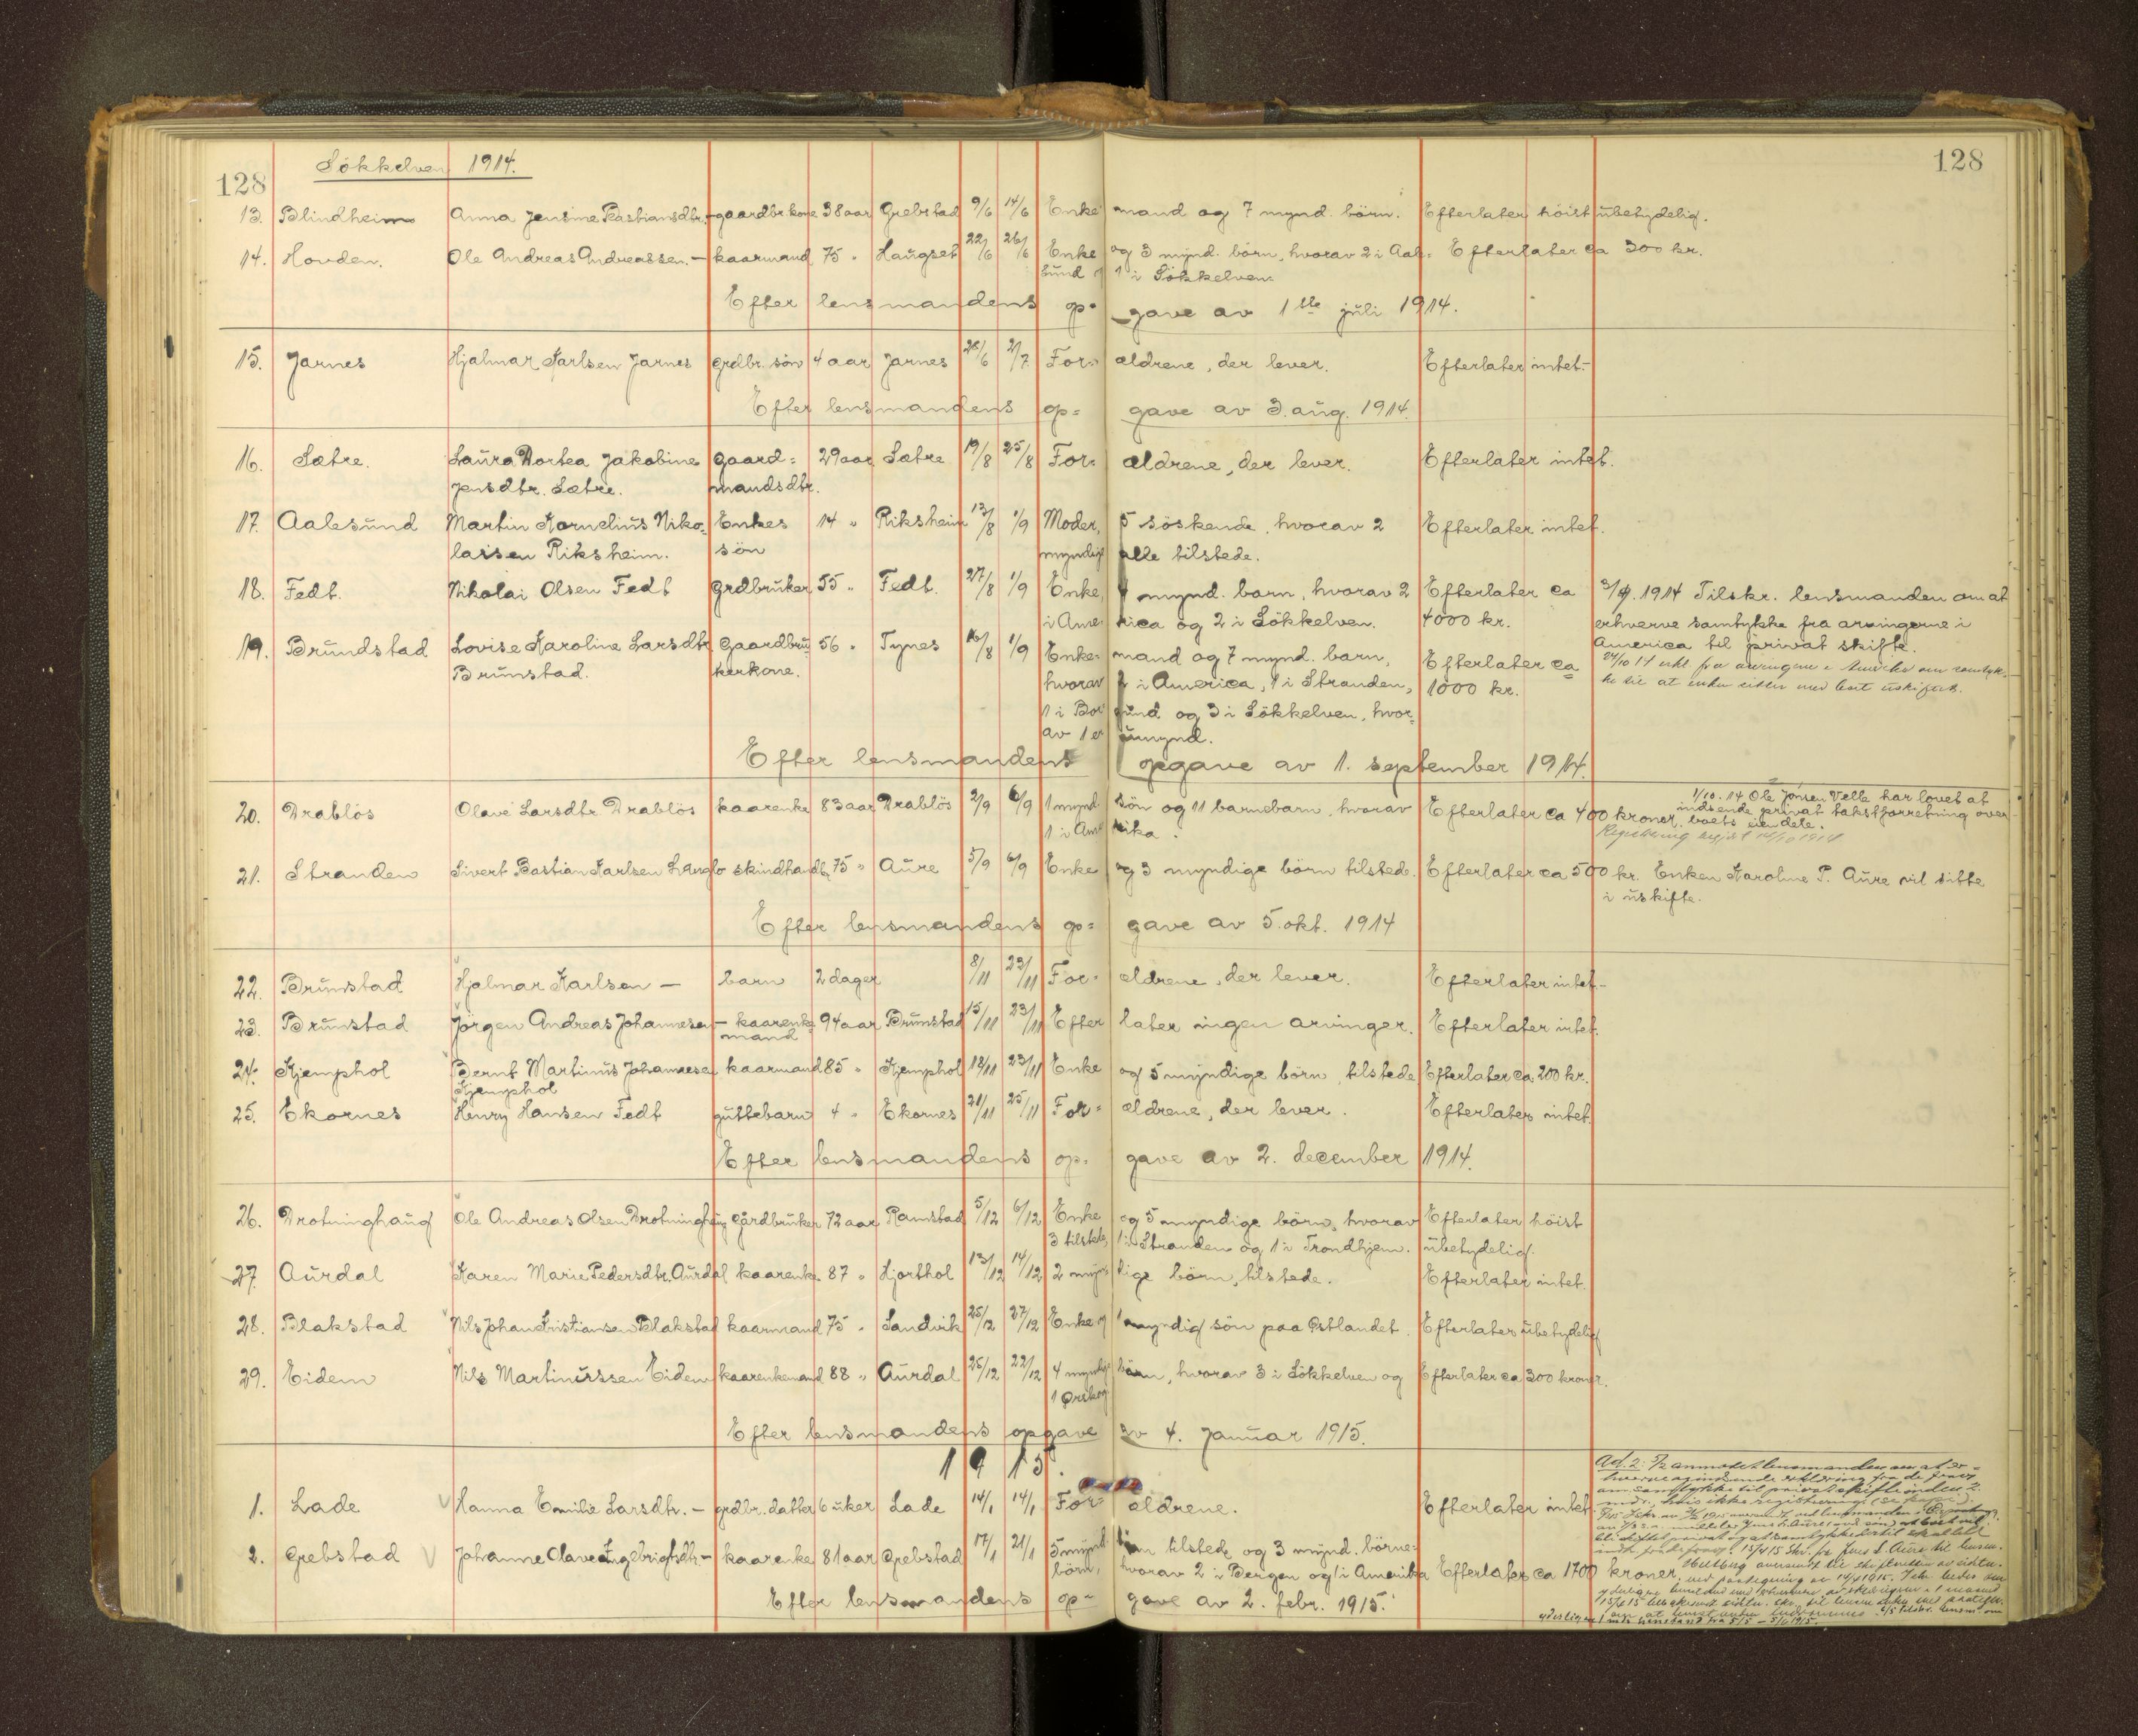 128 Sökkelven 1914. 128
13. Blindheim Anna Jensine Bastiansdtr. - gaardbr. kone 38 aar Grebstad 9/6 14/6 Enke mand og 7 mynd. börn. Efterlater höist ubetydelig.
14. Hovden. Ole Andreas Andreassen. - kaarmand 75 " Haugset 22/6 26/6 Enke og 3 mynd. börn, hvorav 2 i Aale= Efterlater ca 300 kr.
sund og 1 i Sökkelven.
Efter lensmandens op= gave av 1ste juli 1914.
15. Jarnes Hjalmar Karlsen Jarnes grdbr. sön 4 aar Jarnes 26/6 2/7 For= ældrene, der lever. Efterlater intet.-
Efter lensmandens op= gave av 3. aug. 1914.
16. Sætre. Laura Dortea Jakobine gaard= 29 aar Sætre 19/8 25/8 For= ældrene, der lever. Efterlater intet.
Jensdtr. Sætre. mandsdtr.
17. Aalesund Martin Kornelius Niko= Enkes 14 " Riksheim 13/8 1/9 Moder, 5 söskende, hvorav 2 Efterlater intet.
laisen Riksheim. sön myndige alle tilstede.
18. Fedt. Nikolai Olsen Fedt grdbruker 55 " Fedt. 27/8 1/9 Enke, 4 mynd. barn, hvorav 2 Efterlater ca 3/9. 1914 Tilskr. lensmanden om at
i Ame= rica og 2 i Sökkelven. 4000 kr. erhverve samtykke fra arvingerne i
America til privat skifte.
19. Brundstad Lovise Karoline Larsdtr. Gaardbru= 56 " Tynes 16/8 1/9 Enke= mand og 7 mynd. barn, Efterlater ca
Brunstad. kerkone. hvorav 2 i America, 1 i Stranden, 1000 kr.
1 i Bor gund og 3 i Sökkelven, hvor=
av 1 er umynd.
Efter lensmandens opgave av 1. september 1914.
20. Drablös Olave Larsdtr Drablös kaarenke 83 aar Drablös 2/9 6/9 1 mynd. sön og 11 barnebarn, hvorav Efterlater ca 400 kroner. 1/10. 14 Ole Jonsen Velle har lovet at
1 i Ame rika. indsende privat takstforretning over
boets eiendele.
21. Stranden Sivert Bastian Karlsen Langlo skindhandl. 75 " Aure 5/9 6/9 Enke og 3 myndige börn tilstede. Efterlater ca 500 kr. Enken Karoline P. Aure vil sitte
i uskifte.
Efter lensmandens op= gave av 5. okt. 1914
22. Brunstad Hjalmar Karlsen - barn 2 dager 8/11 23/11 For= ældrene, der lever. Efterlater intet.-
23. Brunstad Jörgen Andreas Johannesen - kaarenke 94 aar Brunstad 15/11 23/11 Efter later ingen arvinger. Efterlater intet.
mand
24. Kjemphol Bernt Martinus Johannesen kaarmand 85 " Kjemphol 18/11 23/11 Enke og 5 myndige börn, tilstede Efterlater ca. 200 kr.
Kjemphol
25. Ekornes Henry Hansen Fedt guttebarn 4 " Ekornes 21/11 25/11 For= ældrene, der lever. Efterlater intet.
Efter lensmandens op= gave av 2. december 1914.
26. Drotninghaug Ole Andreas Olsen Drotninghaug Gårdbruker 72 aar Ramstad 5/12 6/12 Enke og 5 myndige börn, hvorav Efterlater höist
3 tilstede, 1 i Stranden og 1 i Trondhjem. ubetydelig.
27. Aurdal Karen Marie Pedersdtr. Aurdal kaarenke 87 " Hjorthol 13/12 14/12 2 myn= dige börn, tilstede. Efterlater intet.
28. Blakstad Nils Johan Kristiansen Blakstad kaarmand 75 " Sandvik 25/12 27/12 Enke og 1 myndig sön paa Østlandet. Efterlater ubetydelig
29. Eidem Nils Martinussen Eidem kaarenkemand 88 " Aurdal 25/12 22/12 4 myndige börn, hvorav 3 i Sökkelven og Efterlater ca 300 kroner.
1 Ørskog
Efter lensmandens opgave av 4. januar 1915.
1915.
1. Lade Hanna Emilie Larsdtr. - grdbr. datter 6 uker Lade 14/1 14/1 For= ældrene. Efterlater intet.
2. Grebstad Johanne Olave Ingebrigtsdtr. - kaarenke 81 aar Grebstad 17/1 21/1 5 mynd. börn tilstede og 3 mynd. börne=
börn, hvorav 2 i Bergen og 1 i Amerika Efterlater ca 1700 kroner.
Efter lensmandens op= gave av 2. febr. 1915.